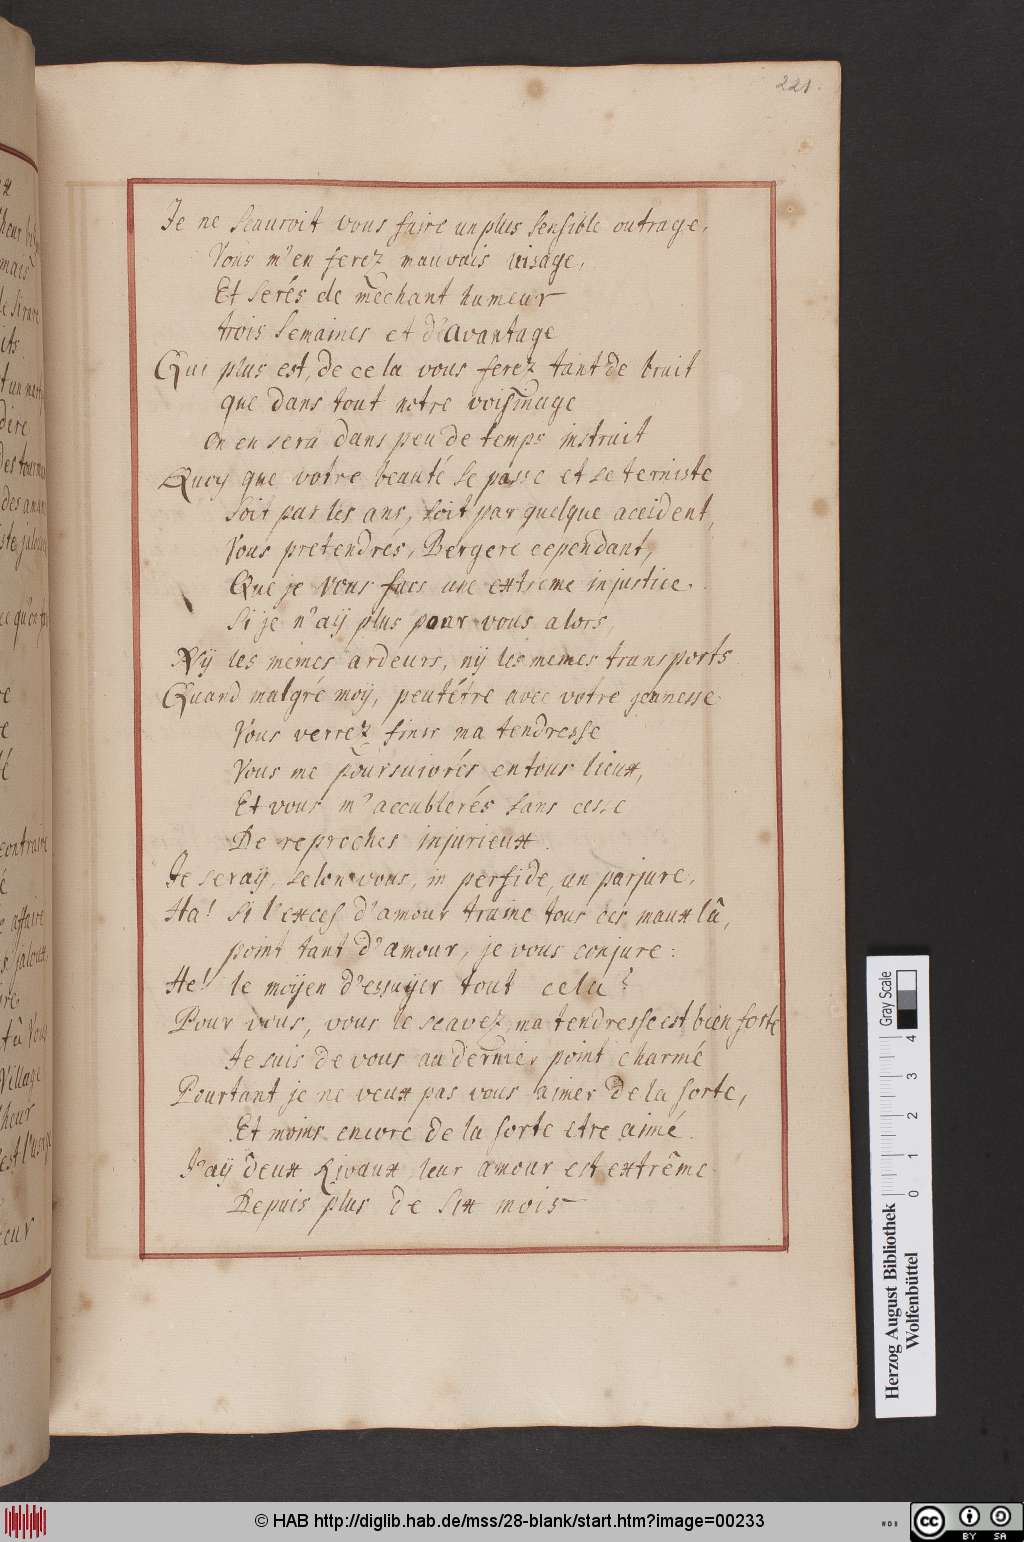 221.
Je ne scauroit vous faire un plus sensible outrage,
Vous m'en ferez mauvais visage,
Et serés de mechant humeur
trois semaines et d'avantage
Qui plus est, de cela vous ferez tant de bruit
que dans tout notre voisinage
On en sera dans peu de temps instruit
Quoy que votre beauté se passe et se terniste
soit par les ans, soit par quelque accident,
Vous pretendres, Bergere cependant,
Que je vous fais une extreme injustice.
Si je n'aÿ plus pour vous alors,
Nÿ les mémes ardeurs, nÿ les memes transports
Quand malgré moÿ, peutétre avec votre jeanesse
Vous verrez finir ma tendresse
Vous me poursuivrés en tous lieux,
Et vous m'accublerés sans cesse
De reproches injurieux.
Je seraÿ, selon vous, un perfide, un parjure,
Ha! si l'exces d'amour traine tous ces maux lâ,
point tant d'amour, je vous conjure:
He! le moÿen d'essuÿer tout cela?
Pour vous, vous le scavez, ma tendresse est bien forte
Je suis de vous au dernier point charmé
Pourtant je ne veux pas vous aimer de la sorte,
Et moins encore de la sorte etre aimé.
J'aÿ deux Rivaux, leur amour est extrême
Depuis plus de six mois
Herzog August Bibliothek
Wolfenbüttel
0 1 2 3 4
Gray Scale
© HAB http://diglib.hab.de/mss/28-blank/start.htm?image=00233
WDB
cc BY SA